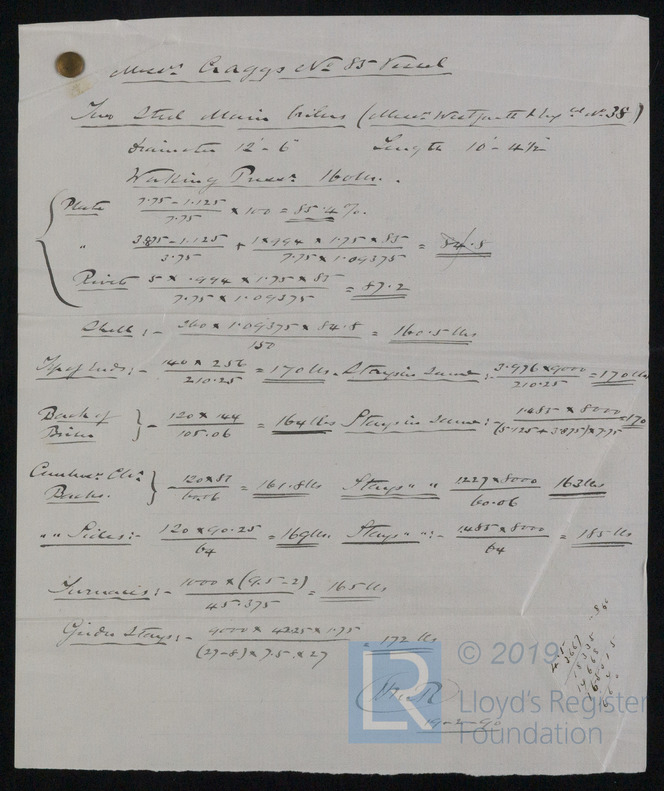 Messrs Craggs No 85 Vessel
Two Steel Main boilers (Messrs Westgarth & Co No. 38)
Diameter 12'-6" Length 10'-4½
Working Pressr 160 lbs.
Plate 7.75 - 1.125 / 7.75 × 100 = 85.4 %.
" 3.875 - 1.125 / 3.75 + 1 × .994 × 1.75 × 85 / 7.75 × 1.09375 = 84.8
Rivets 5 × .994 × 1.75 × 85 / 7.75 × 1.09375 = 87.2
Shell :- 260 × 1.09375 × 84.8 / 150 = 160.5 lbs
Top of Ends :- 140 × 256 / 210.25 = 170 lbs. Stays in same :- 3.976 × 9000 / 210.25 = 170 lbs
Back of Boiler } - 120 × 144 / 105.06 = 164 lbs Stays in same :- 1.485 × 8000 / (5.125 + 3.875) × 7.75 = 170
Combusn Chr Backs. } - 120 × 81 / 60.06 = 161.8 lbs Stays " " 1227 × 8000 / 60.06 163 lbs
" " Sides :- 120 × 90.25 / 64 = 169 lbs. Stays " " :- 1.485 × 8000 / 64 = 185 lbs
Furnaces :- 1000 × (9.5 - 2) / 45.375 = 165 lbs
Girder Stays :- 9000 × 42.25 × 1.75 / (27 - 8) × 7.5 × 27 = 172 lbs
19-2-90
© 2019
LR
Lloyd's Register
Foundation